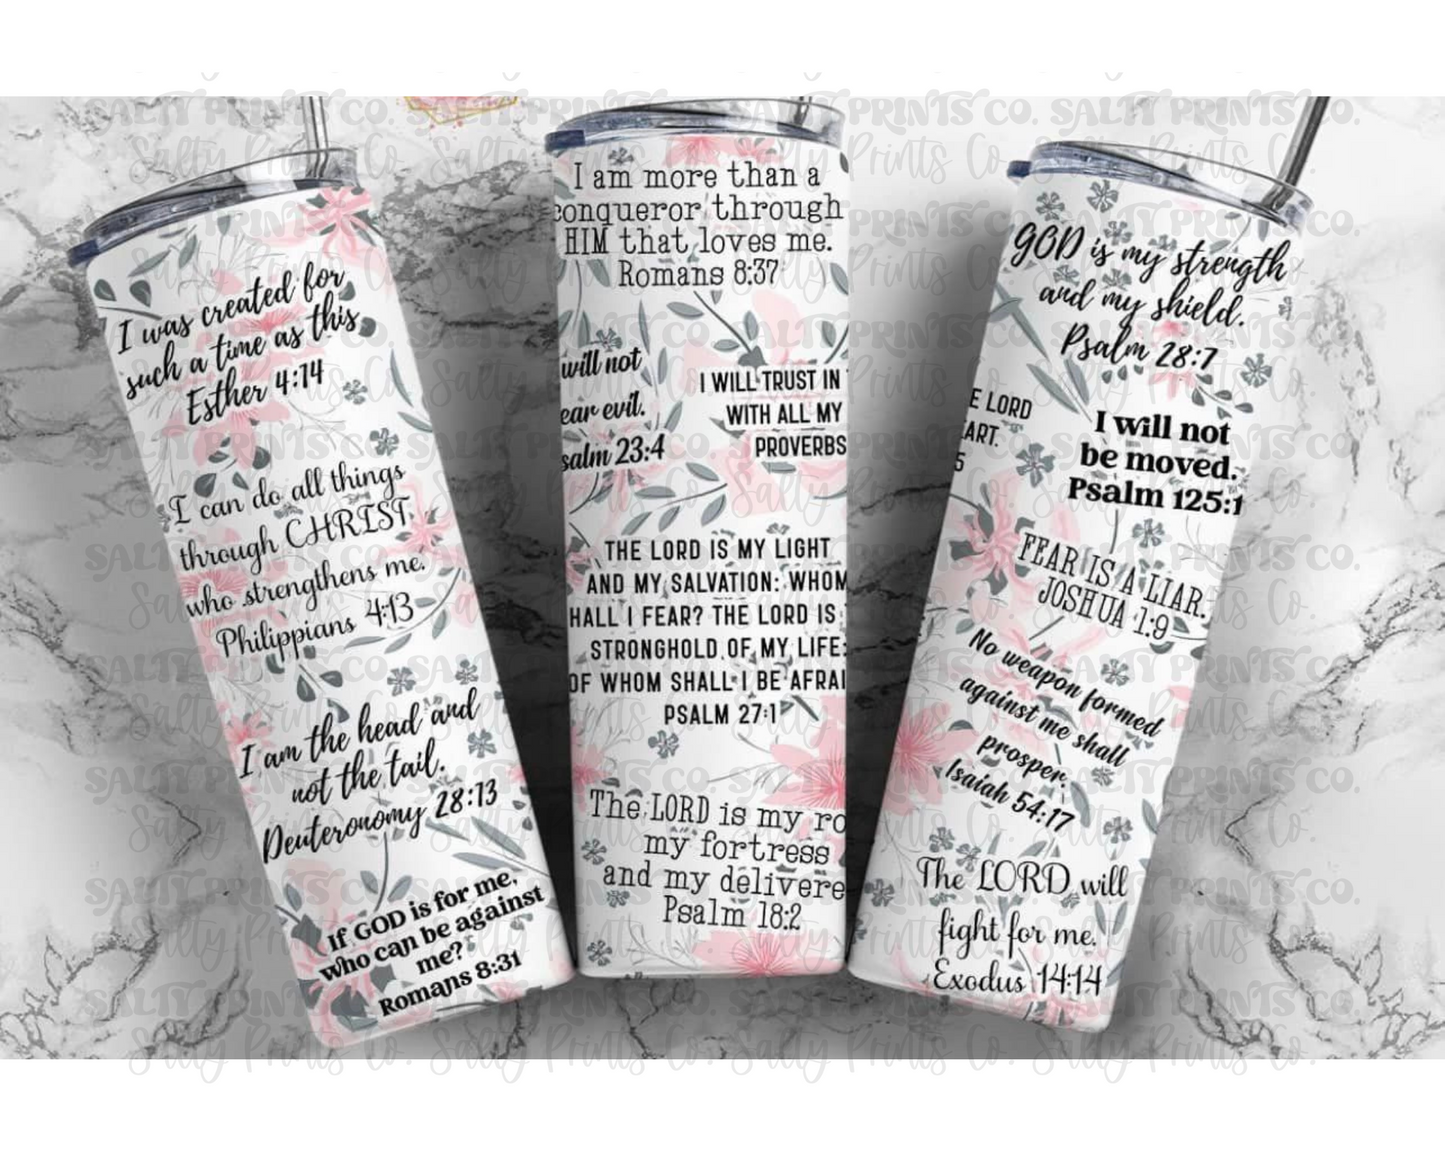 I was created for
such a time as this
Esther 4:14
I can do all things
through CHRIST
who strengthens me.
Philippians 4:13
I am the head and
not the tail.
Deuteronomy 28:13
If GOD is for me,
who can be against
me?
Romans 8:31
I am more than a
conqueror through
HIM that loves me.
Romans 8:37
will not
ear evil.
salm 23:4
I WILL TRUST IN
WITH ALL MY
PROVERBS
THE LORD IS MY LIGHT
AND MY SALVATION: WHOM
HALL I FEAR? THE LORD IS
STRONGHOLD OF MY LIFE:
OF WHOM SHALL I BE AFRAI
PSALM 27:1
The LORD is my ro
my fortress
and my delivere
Psalm 18:2
GOD is my strength
and my shield.
Psalm 28:7
E LORD
ART.
5
I will not
be moved.
Psalm 125:1
FEAR IS A LIAR.
JOSHUA 1:9
No weapon formed
against me shall
prosper.
Isaiah 54:17
The LORD will
fight for me.
Exodus 14:14
SALTY PRINTS CO.
Salty Prints Co.